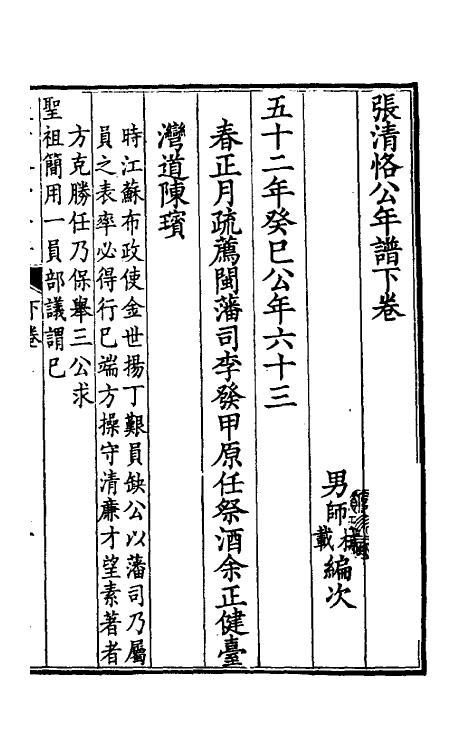 張清恪公年譜下卷
男師栻載編次
五十二年癸巳公年六十三
春正月疏薦閩藩司李發甲原任祭酒余正健臺
灣道陳璸
時江蘇布政使金世揚丁艱員缺公以藩司乃屬
員之表率必得行已端方操守清廉才望素著者
方克勝任乃保舉三公求
聖祖簡用一員部議謂巳
下卷